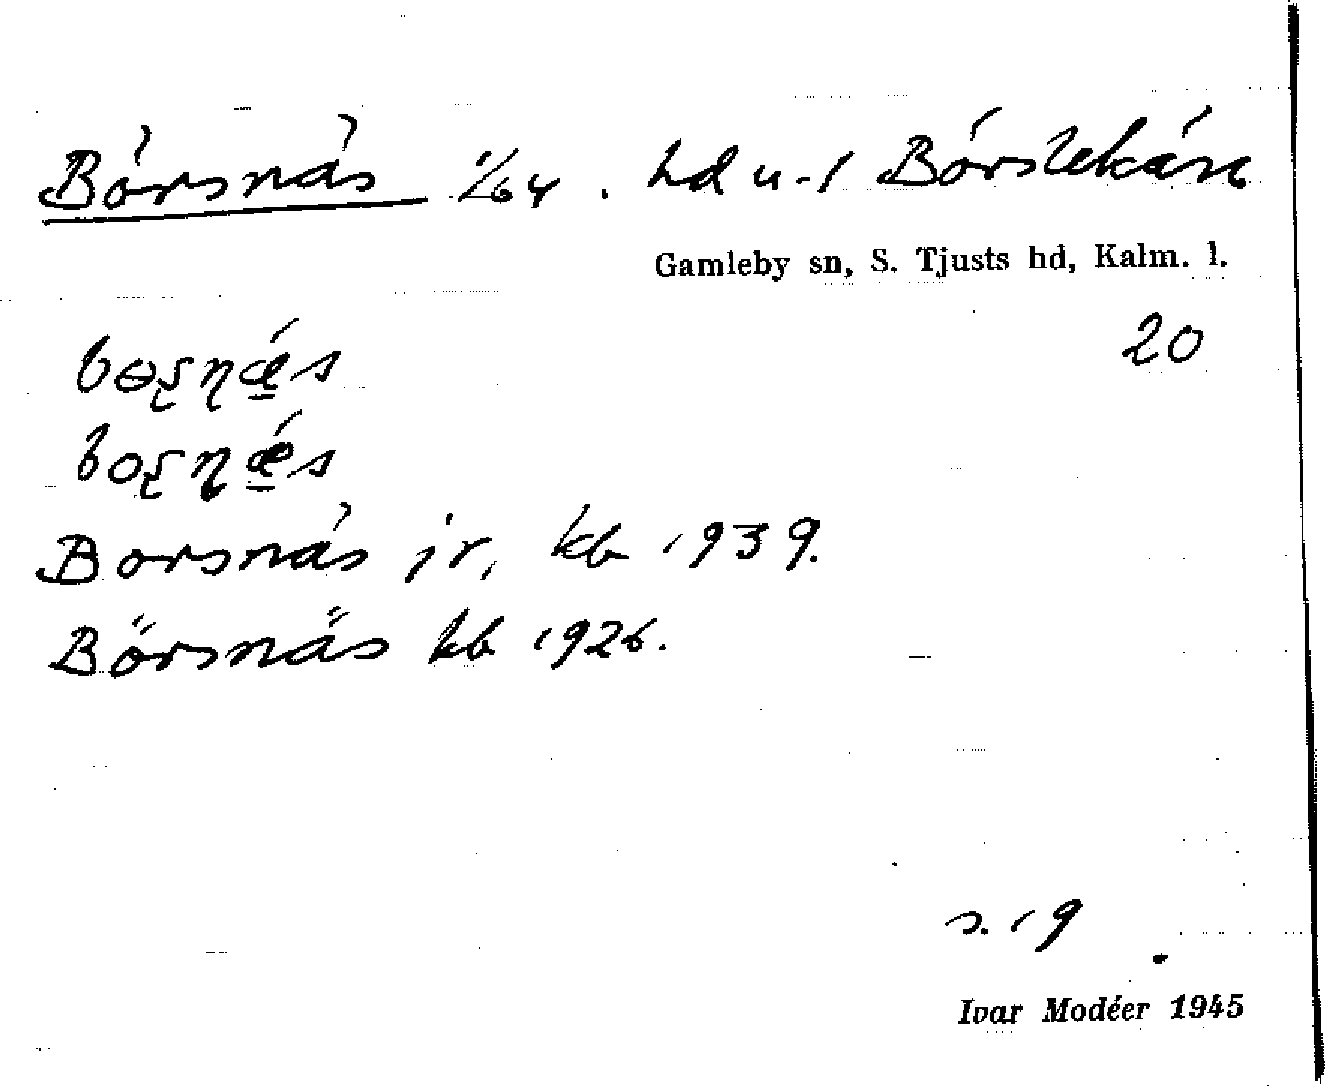 Börsnäs 1/64. hd u. f Börstekärr
Gamleby sn, S. Tjusts hd, Kalm. l.
20
Borsnäs jr, kb 1939.
Börsnäs kb 1926.
s. 19
Ivar Modéer 1945